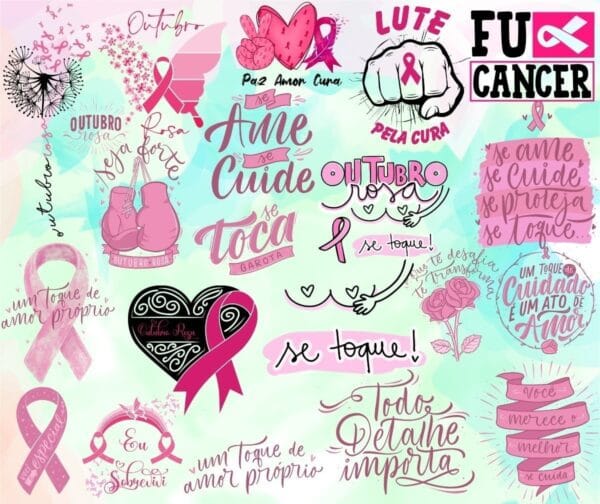 Outubro
Rosa
Paz Amor Cura
LUTE
PELA CURA
FU
CANCER
OUTUBRO
rosa
outubro rosa
seja forte
OUTUBRO ROSA
se
Ame
se
Cuide
se
toca
GAROTA
OUTUBRO
rosa
se toque!
se ame
se cuide
se proteja
se toque...
um toque de
amor próprio
Outubro Rosa
desafia
te transforma
UM TOQUE de
Cuidado
É UM ATO DE
Amor
se toque!
você
especial
Eu
Sobrevivi
um toque de
amor próprio
Todo
Detalhe
importa
Você
merece o
melhor.
se cuida